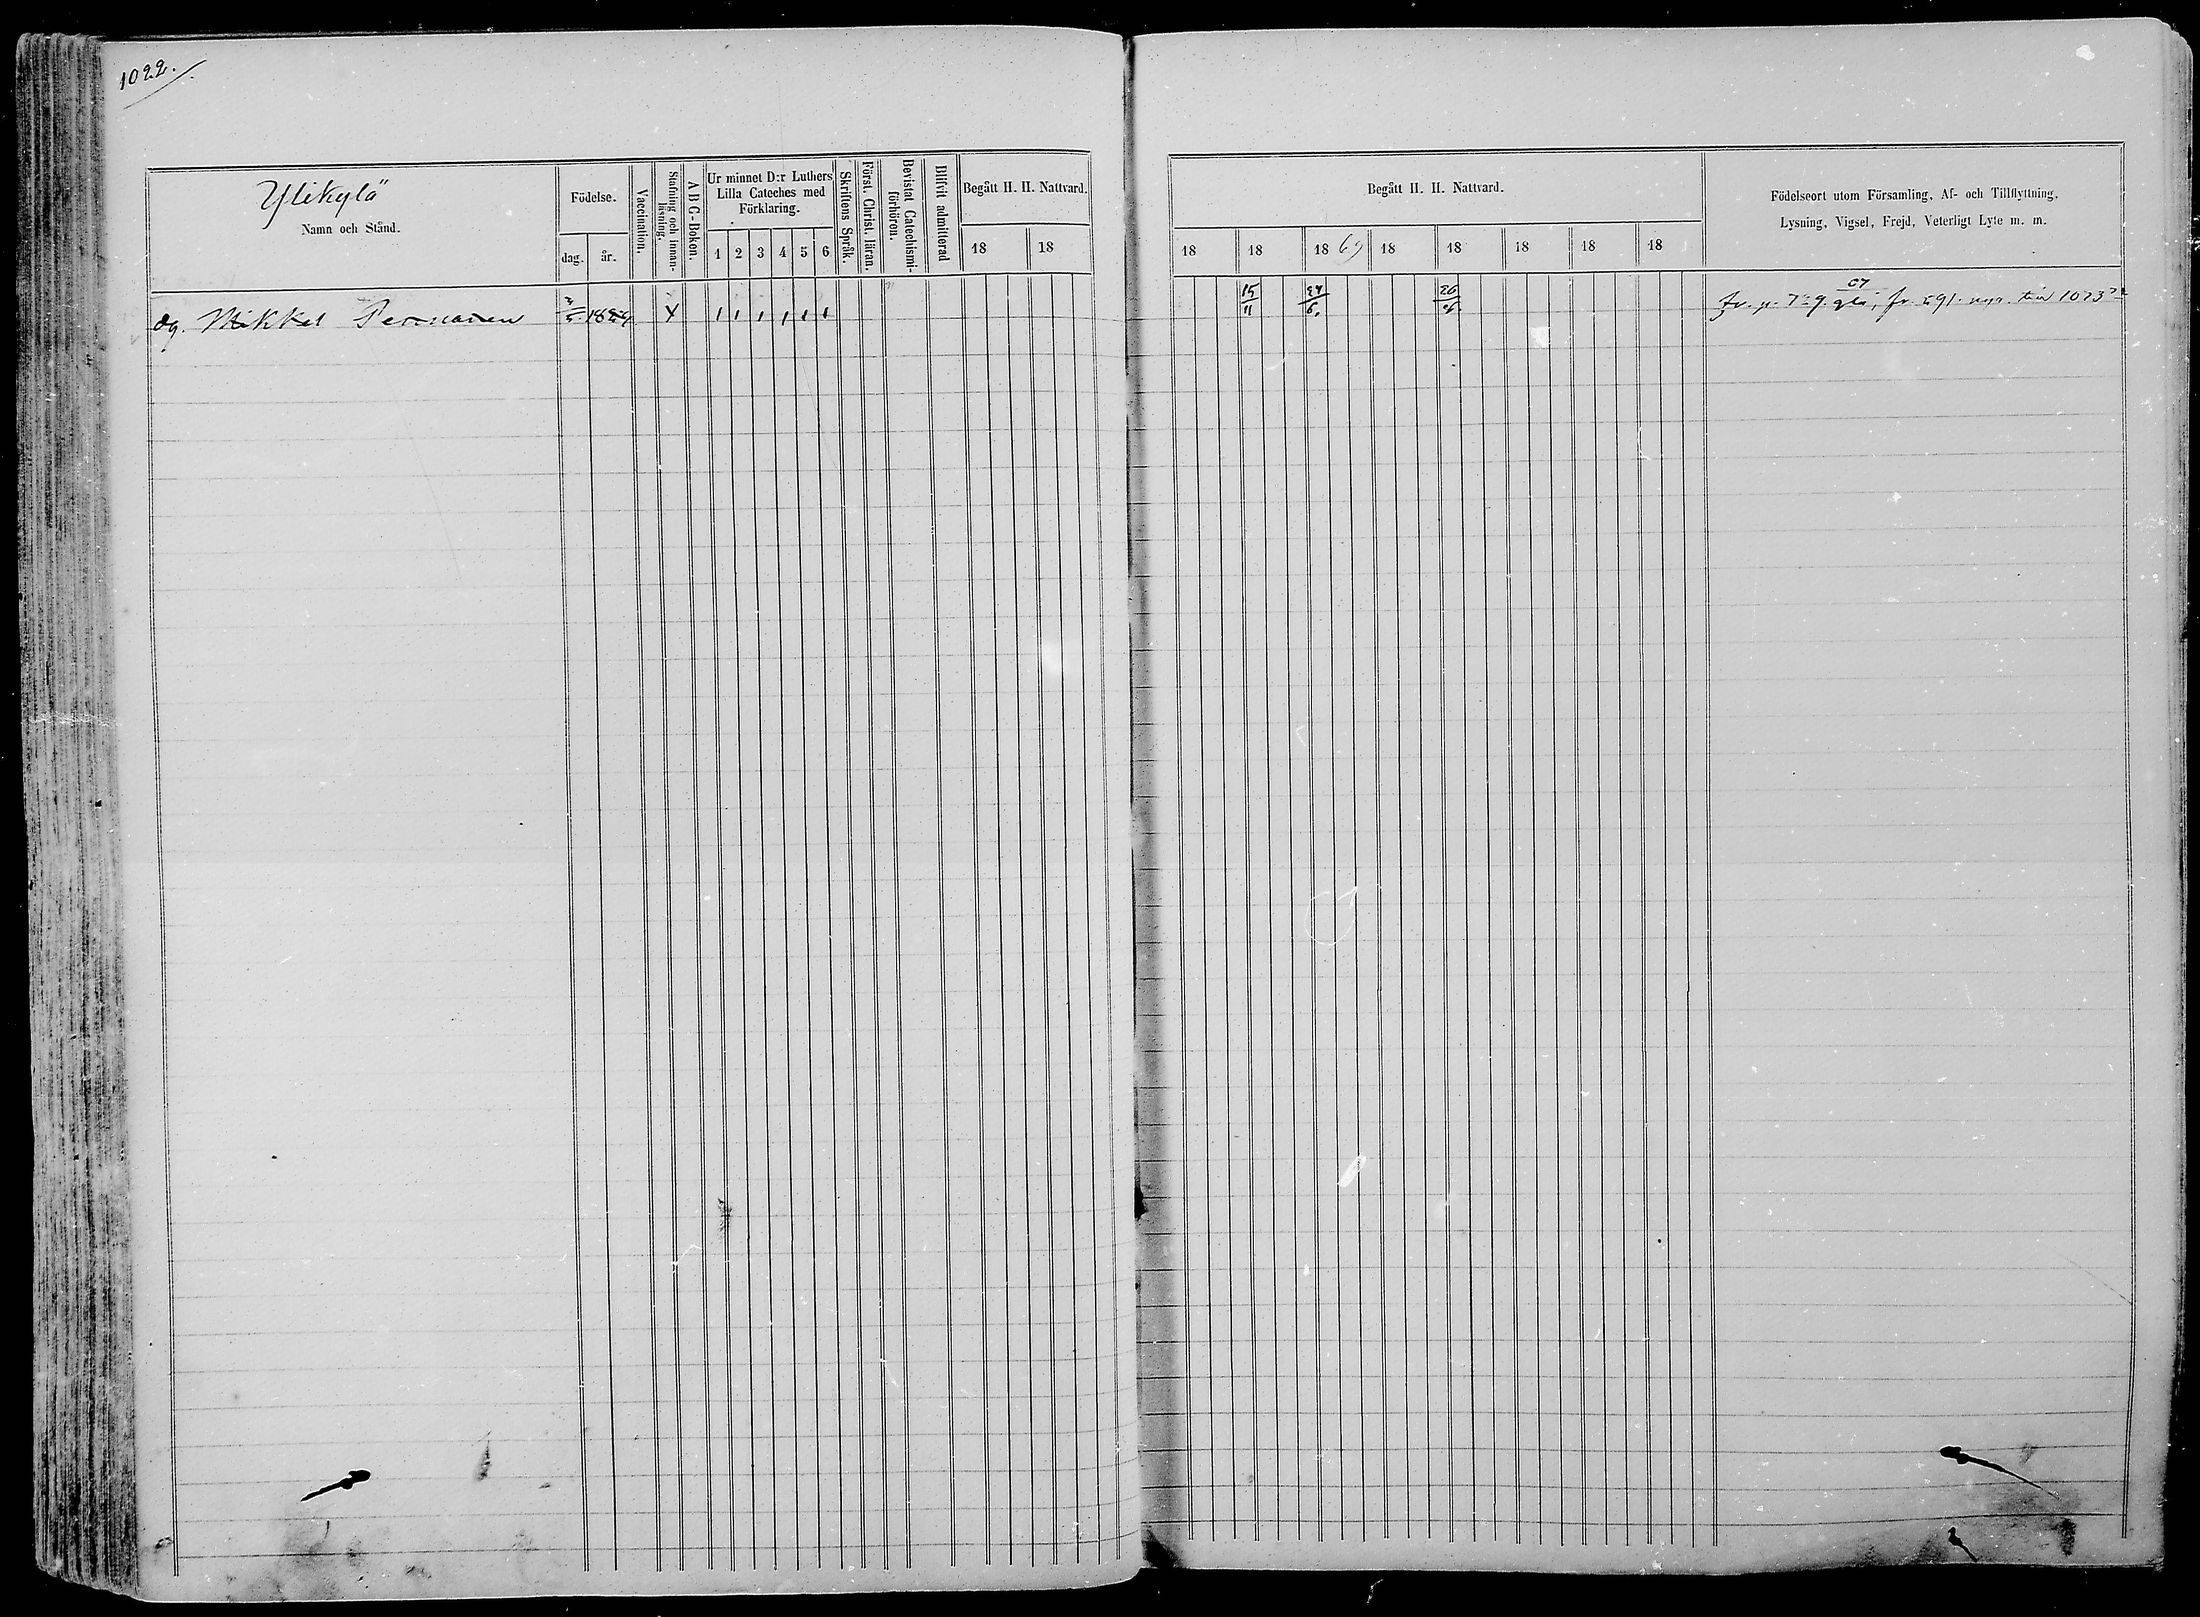 1022.
Ylikylä
Namn och Stånd.
Födelse.
dag. år.
Vaccination.
Stafning och innanläsning.
A B C-Boken.
Ur minnet D:r Luthers
Lilla Cateches med
Förklaring.
1 2 3 4 5 6
Skriftens Språk.
Först. Christ. läran.
Bevistat Catechismi-
förhören.
Blifvit admitterad
Begått H. H. Nattvard.
18 18
Begått H. H. Nattvard.
18 18 18 69 18 18 18 18 18
Födelseort utom Församling, Af- och Tillflyttning,
Lysning, Vigsel, Frejd, Veterligt Lyte m. m.
dg. Mikkel Pernanen
15/11
26